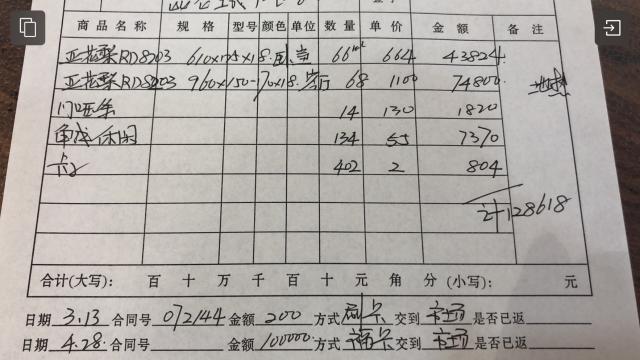 商品名称 规格 型号 颜色 单位 数量 单价 金额 备注
亚花梨RD8203 610×125×18 卧室 66 664 43824
亚花梨RD8203 960×150-170×18 68 1100 74800 地热
门哑条 14 130 1820
134 55 7370
卡子 402 2 804
计128618
合计(大写): 百 十 万 千 百 十 元 角 分 (小写): 元
日期 3.13 合同号 072144 金额 200 方式 刷卡 交到 市场 是否已返
日期 4.28 合同号 金额 100000 方式 卡 交到 市场 是否已返